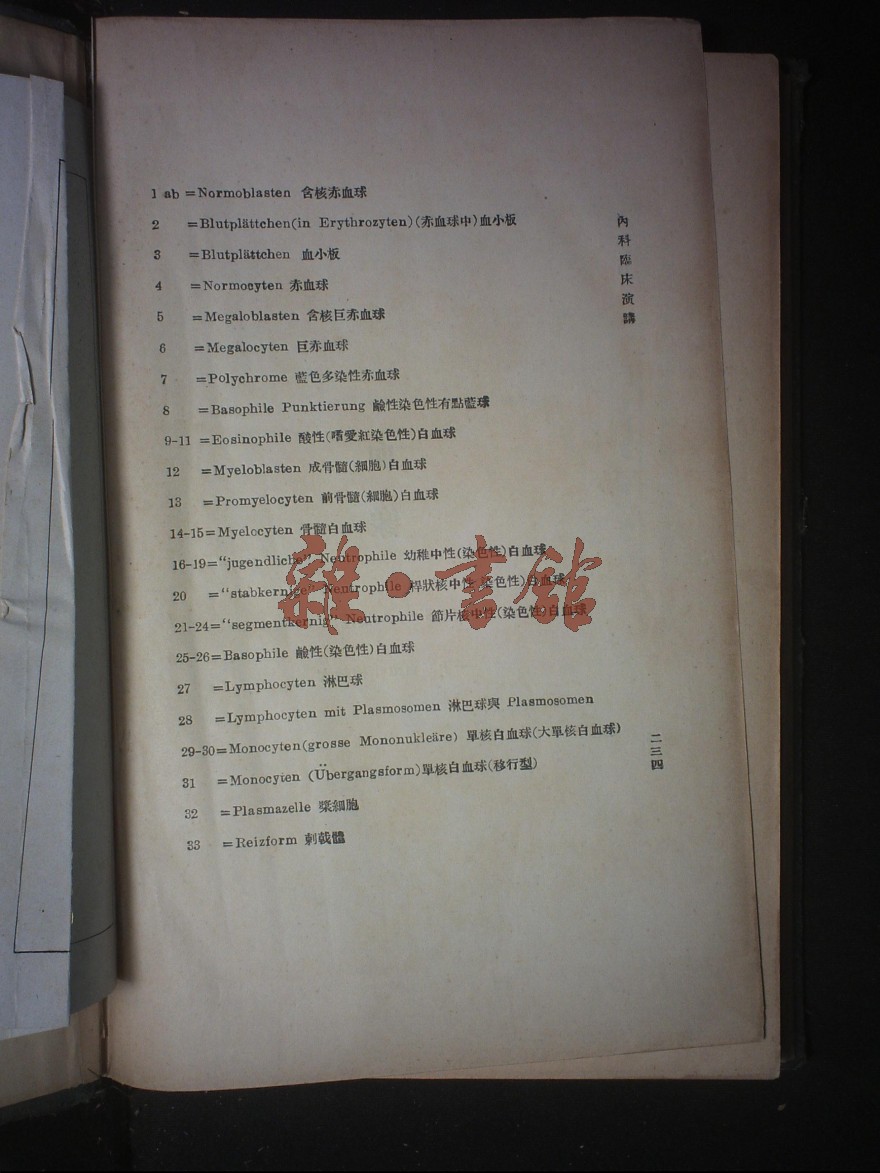 1 ab =Normoblasten 含核赤血球
2 =Blutplättchen(in Erythrozyten)(赤血球中)血小板
3 =Blutplättchen 血小板
4 =Normocyten 赤血球
5 =Megaloblasten 含核巨赤血球
6 =Megalocyten 巨赤血球
7 =Polychrome 藍色多染性赤血球
8 =Basophile Punktierung 鹼性染色性有點藍球
9-11 =Eosinophile 酸性(嗜愛紅染色性)白血球
12 =Myeloblasten 成骨髓(細胞)白血球
13 =Promyelocyten 前骨髓(細胞)白血球
14-15=Myelocyten 骨髓白血球
16-19="jugendliche" Neutrophile 幼稚中性(染色性)白血球
20 ="stabkernige" Neutrophile 桿狀核中性(染色性)白血球
21-24="segmentkernig" Neutrophile 節片核中性(染色性)白血球
25-26=Basophile 鹼性(染色性)白血球
27 =Lymphocyten 淋巴球
28 =Lymphocyten mit Plasmosomen 淋巴球與 Plasmosomen
29-30=Monocyten(grosse Mononukleäre) 單核白血球(大單核白血球)
31 =Monocyten (Übergangsform)單核白血球(移行型)
32 =Plasmazelle 漿細胞
33 =Reizform 刺戟體
內科臨床演講
二三四
雜·書館